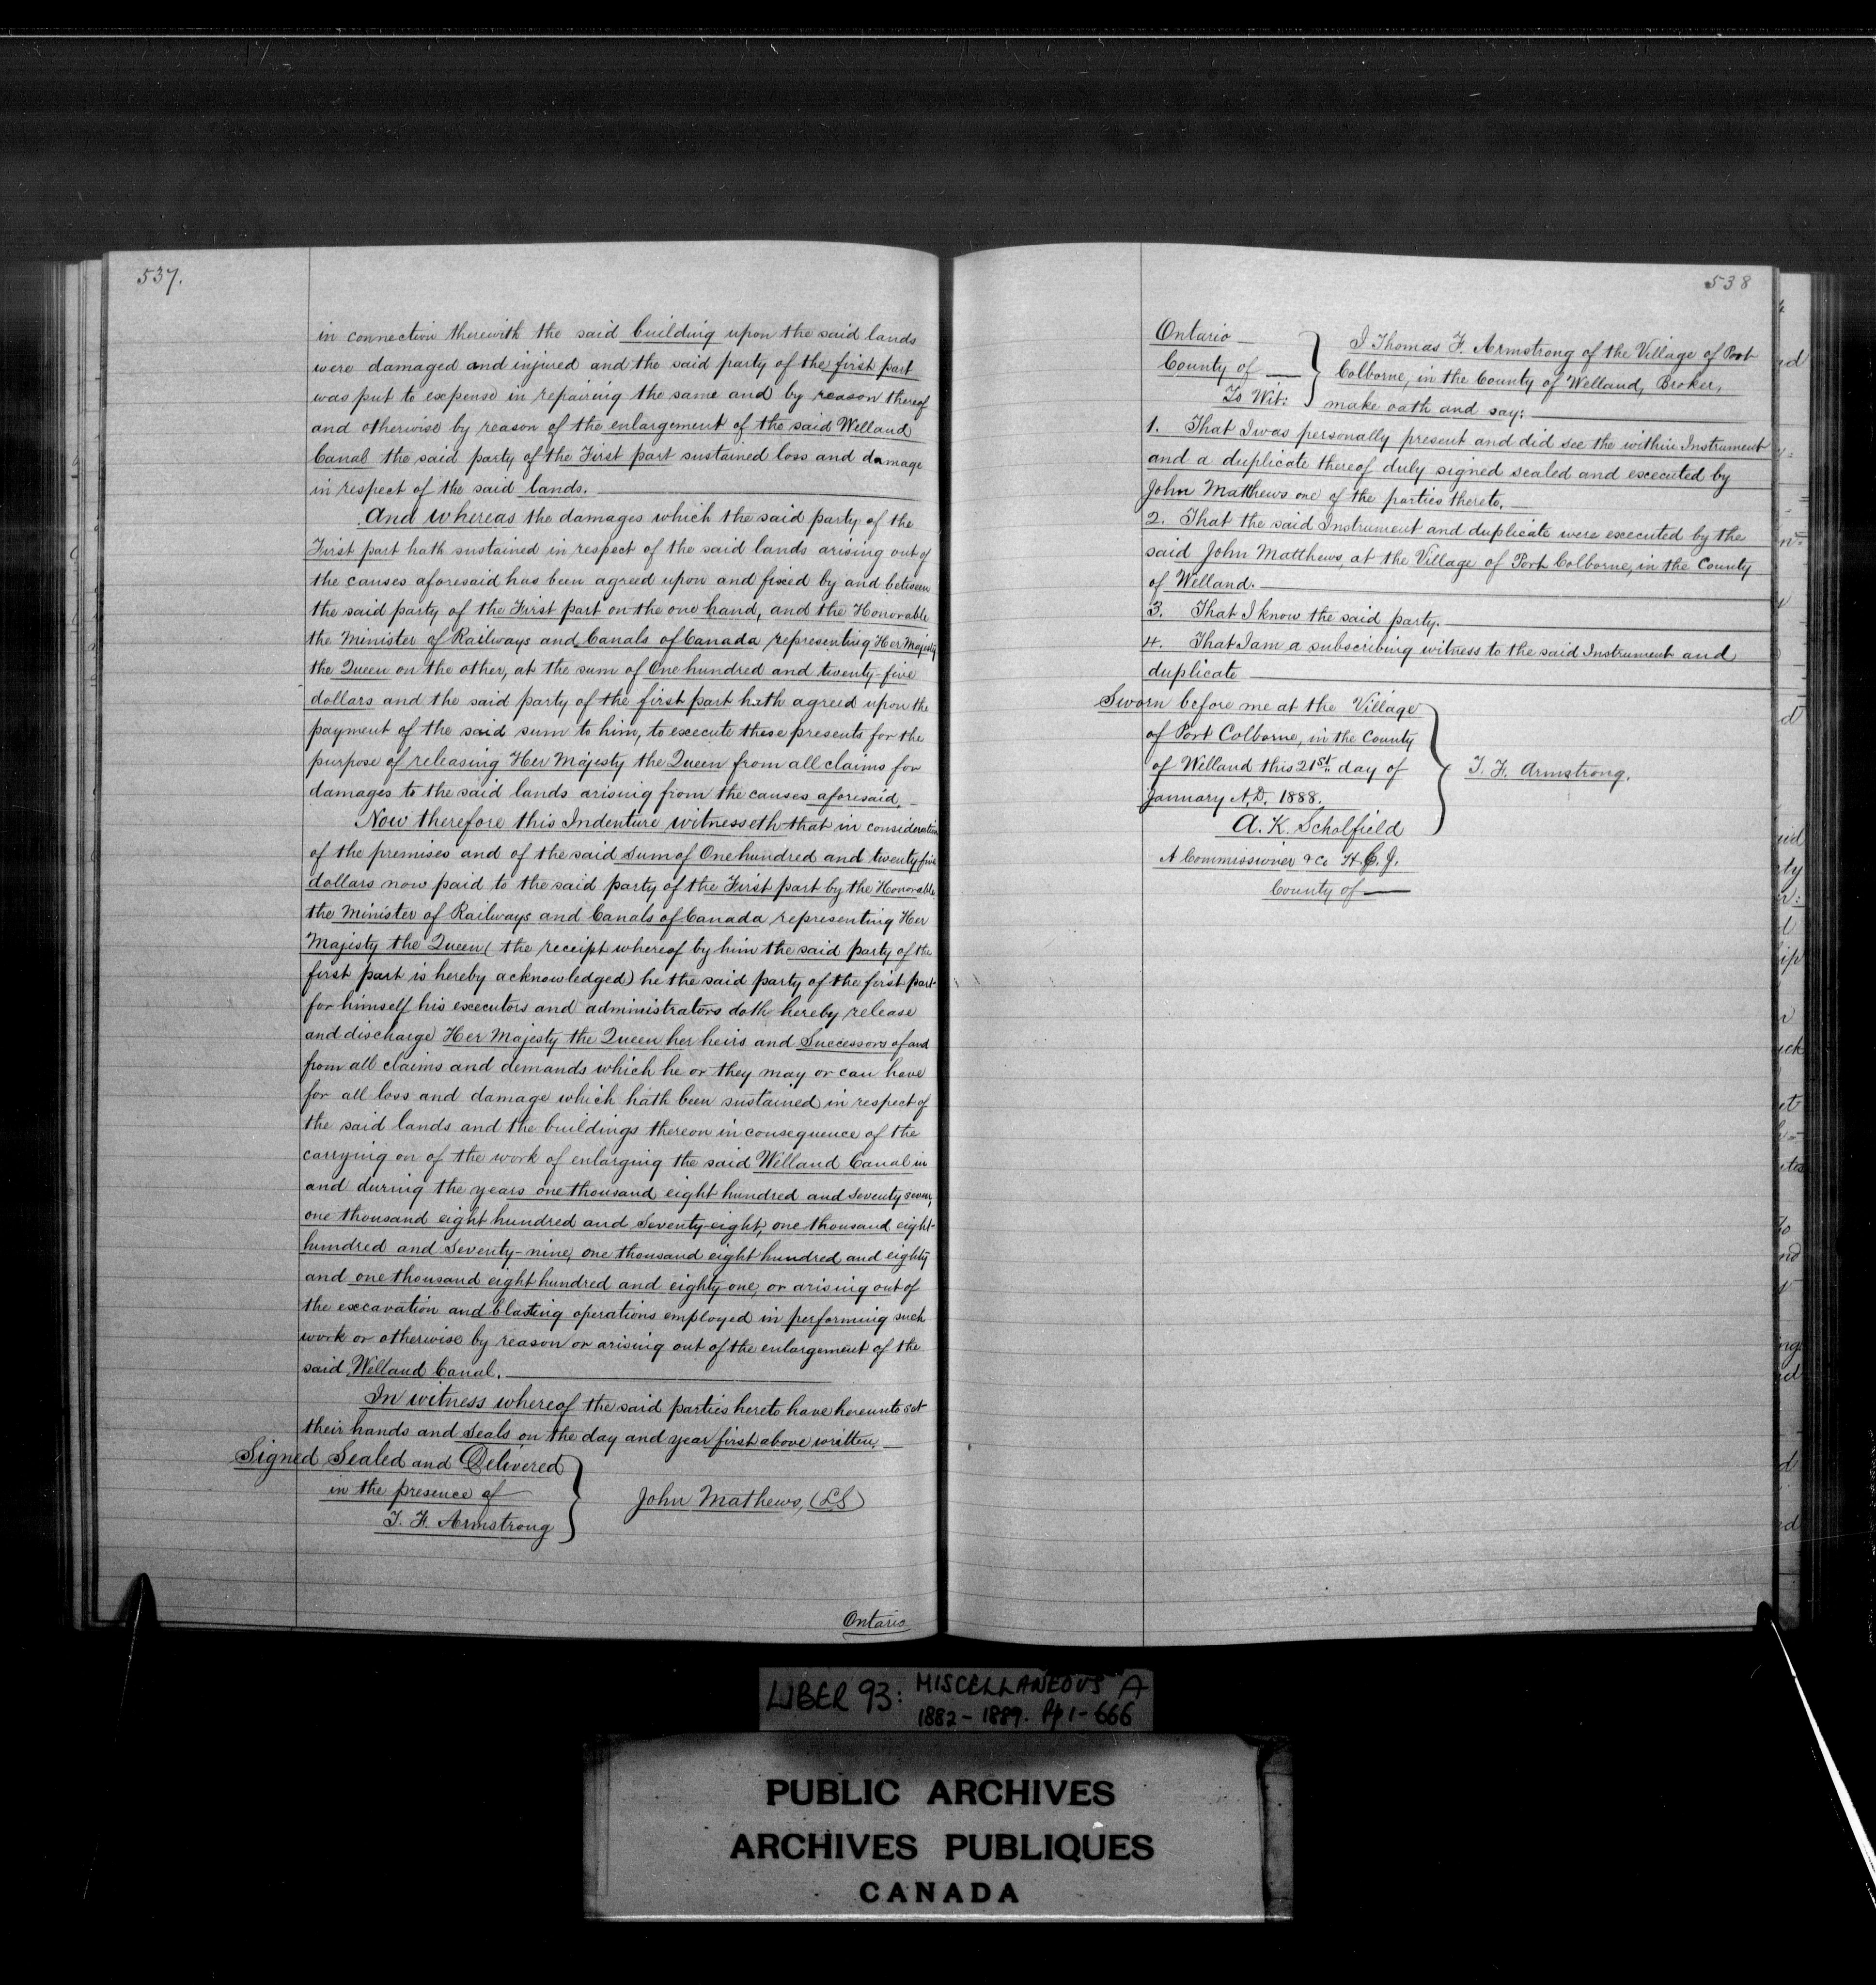 537.
in connection therewith the said building upon the said lands
were damaged and injured and the said party of the first part
was put to expense in repairing the same and by reason thereof
and otherwise by reason of the enlargement of the said Welland
Canal the said party of the First part sustained loss and damage
in respect of the said lands.
And whereas the damages which the said party of the
First part hath sustained in respect of the said lands arising out of
the causes aforesaid has been agreed upon and fixed by and between
the said party of the First part on the one hand, and the Honorable
the Minister of Railways and Canals of Canada representing Her Majesty
the Queen on the other, at the sum of One hundred and twenty-five
dollars and the said party of the first part hath agreed upon the
payment of the said sum to him, to execute these presents for the
purpose of releasing Her Majesty the Queen from all claims for
damages to the said lands arising from the causes aforesaid
Now therefore this Indenture witnesseth that in consideration
of the premises and of the said sum of One hundred and twenty five
dollars now paid to the said party of the First part by the Honorable
the Minister of Railways and Canals of Canada representing Her
Majesty the Queen (the receipt whereof by him the said party of the
first part is hereby acknowledged) he the said party of the first part
for himself his executors and administrators doth hereby release
and discharge Her Majesty the Queen her heirs and Successors of and
from all claims and demands which he or they may or can have
for all loss and damage which hath been sustained in respect of
the said lands and the buildings thereon in consequence of the
carrying on of the work of enlarging the said Welland Canal in
and during the years one thousand eight hundred and seventy seven,
one thousand eight hundred and seventy-eight, one thousand eight
hundred and seventy-nine, one thousand eight hundred and eighty
and one thousand eight hundred and eighty one, or arising out of
the excavation and blasting operations employed in performing such
work or otherwise by reason or arising out of the enlargement of the
said Welland Canal.
In witness whereof the said parties hereto have hereunto set
their hands and seals on the day and year first above written.
Signed Sealed and Delivered
in the presence of
T. F. Armstrong
John Mathews, (LS)
Ontario
538
Ontario
County of
To Wit:
I Thomas F. Armstrong of the Village of Port
Colborne, in the County of Welland, Broker,
make oath and say:
1. That I was personally present and did see the within Instrument
and a duplicate thereof duly signed sealed and executed by
John Matthews one of the parties thereto.
2. That the said Instrument and duplicate were executed by the
said John Matthews at the Village of Port Colborne, in the County
of Welland.
3. That I know the said party.
4. That I am a subscribing witness to the said Instrument and
duplicate
Sworn before me at the Village
of Port Colborne, in the County
of Welland this 21st day of
January A.D. 1888.
T. F. Armstrong.
A. K. Scholfield
A Commissioner &c H.C.J.
County of
LIBER 93: MISCELLANEOUS A
1882-1889. Pp 1-666
PUBLIC ARCHIVES
ARCHIVES PUBLIQUES
CANADA